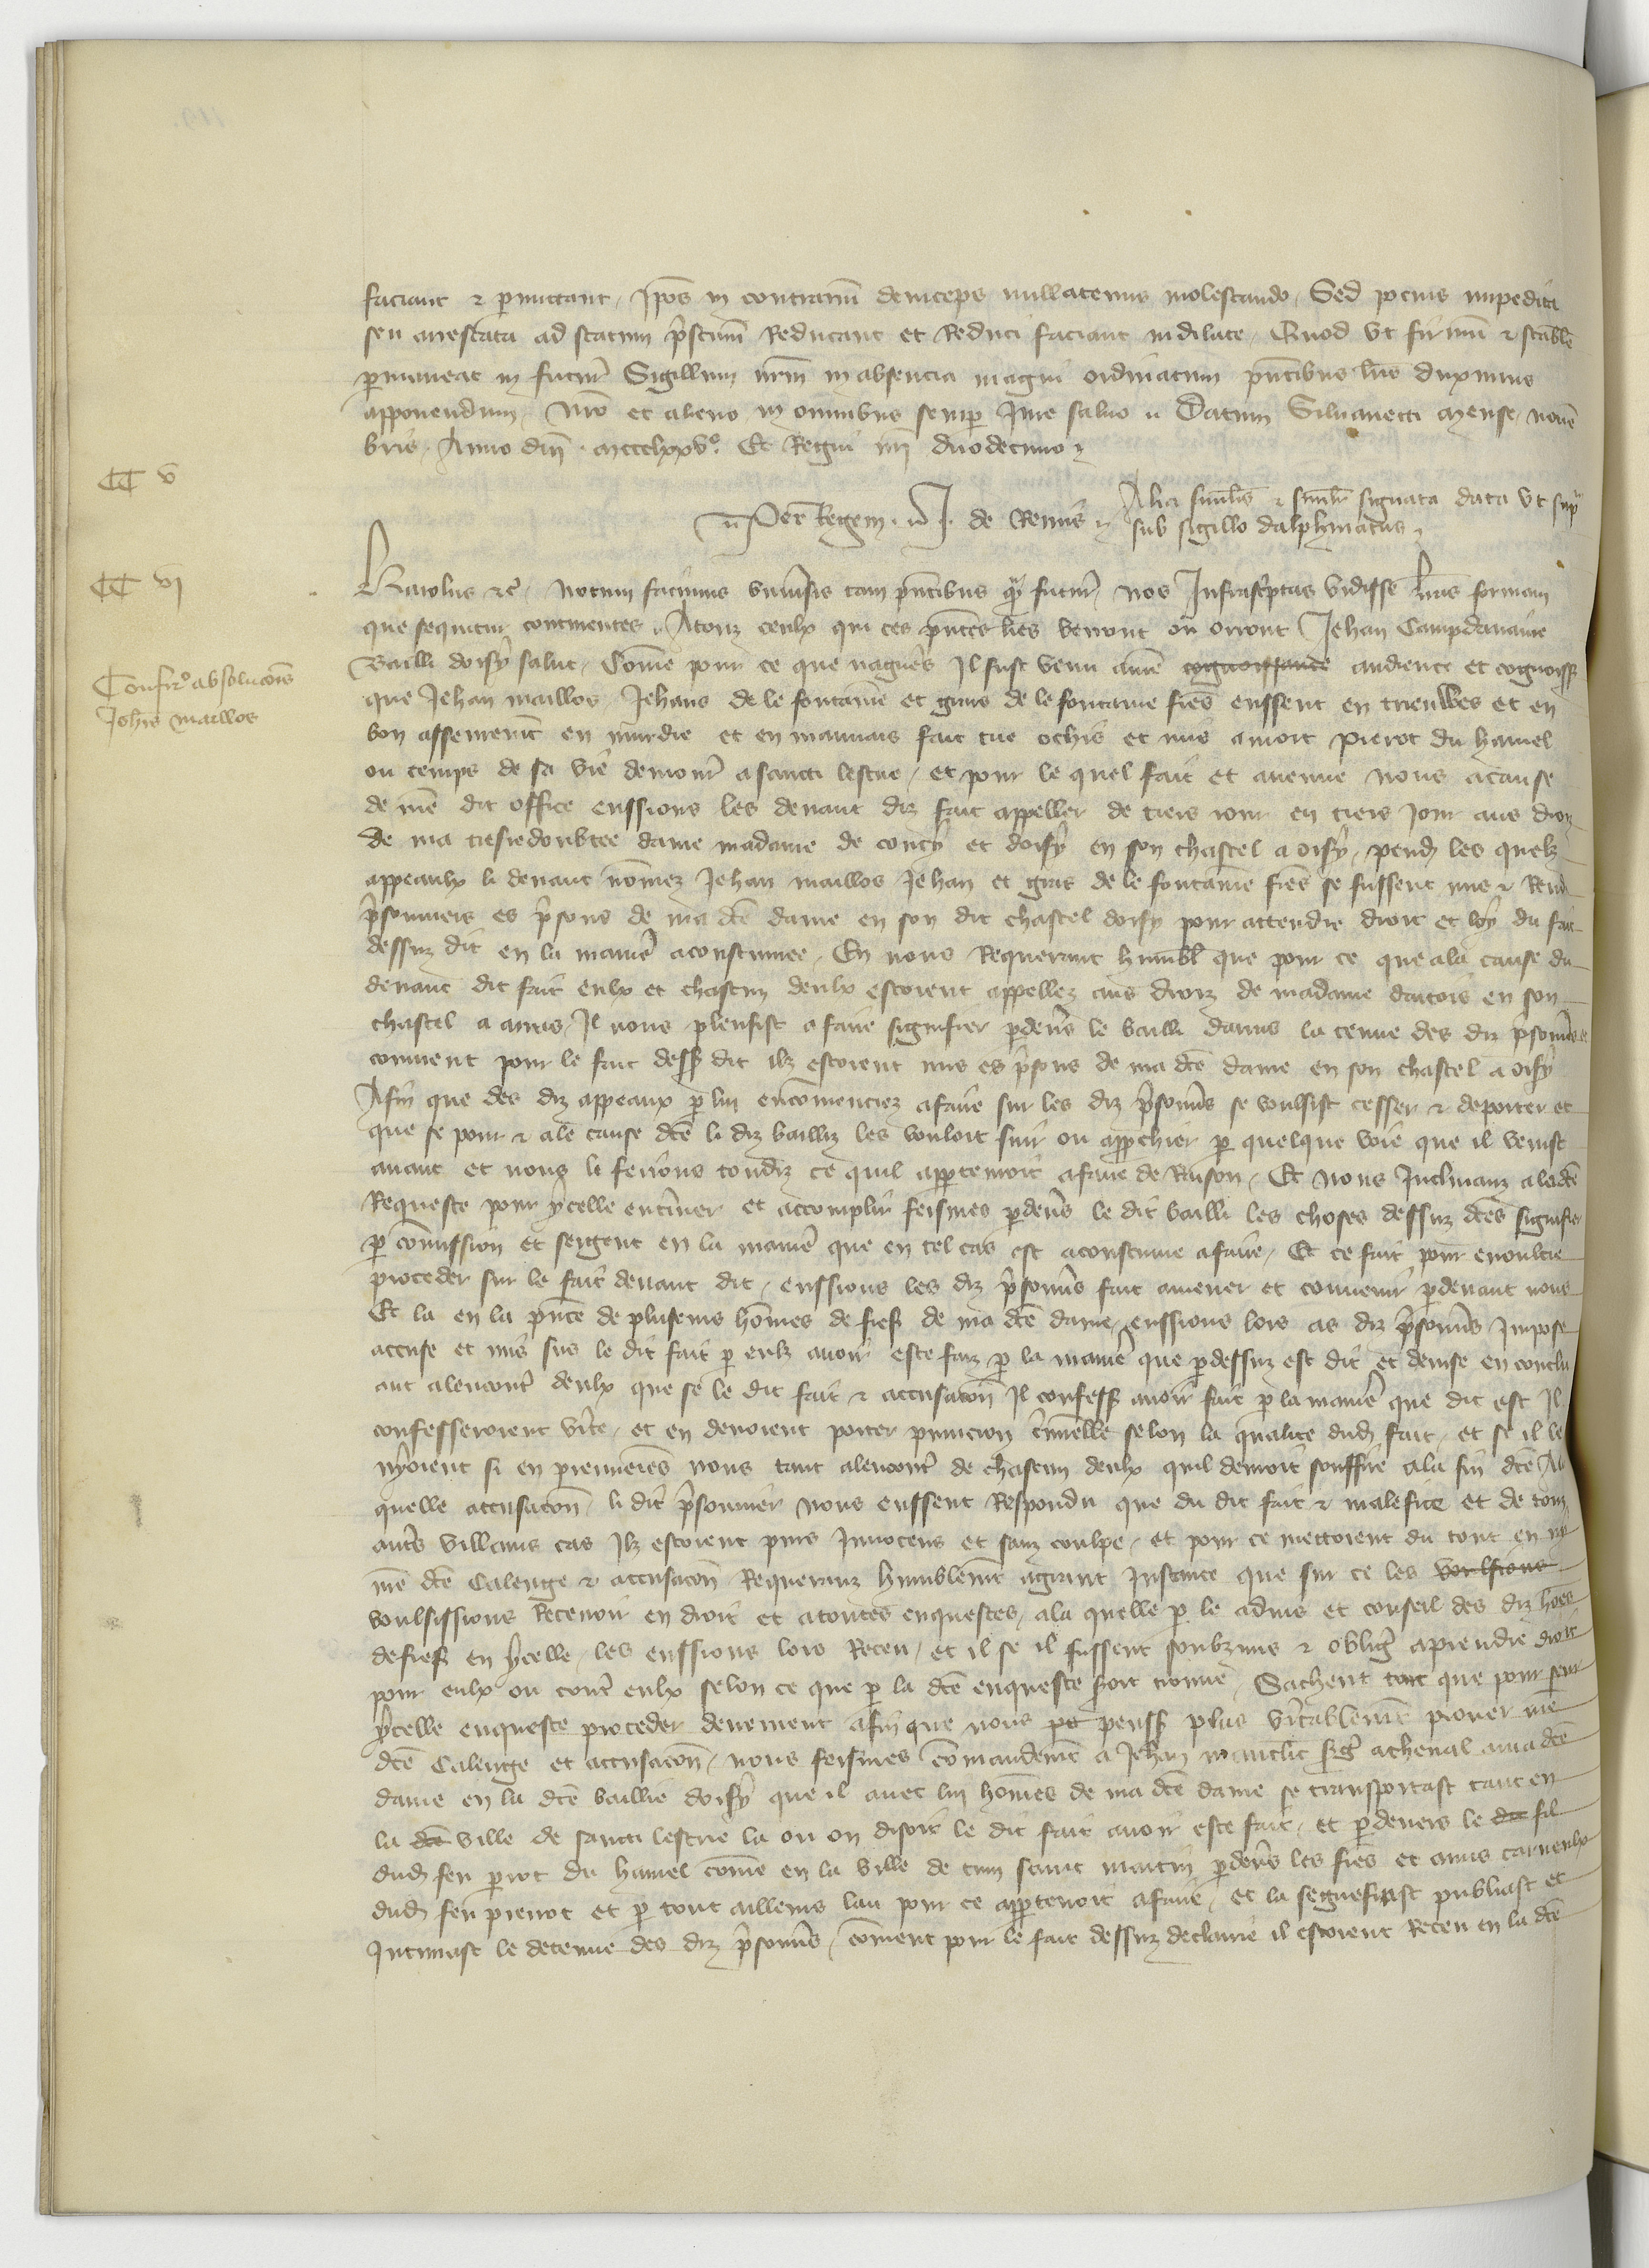 faciant & pmittant. Ipos in contrariu deinceps nullatenus molestando. Sed pocius impedita
seu arrestata ad statum pstinu Reducant et Reduci faciant indilate. Quod vt firmu & stabile
pmaneat in futur Sigillum nrm in absencia magni ordinatum pntibus lris duximus
apponendum. Nro et alieno in omnibus semp Iure saluo Datum Siluanecti mense nouē
bris. Anno dni . mccclxxvo. Et Regni nri duodecimo
CC v
Per Regem . J. de Remis
Alia similis & similr signata data vt sup
sub sigillo dalphinatus
CC vi
Karolus &c. Notum facimus vniusis tam pntibus q futur. Nos Infrascptas vidisse lras formam
que sequitur continentes. Atouz ceulx qui ces pntes lres verront ou orront Jehan Campdauaine
Bailli doisy salut. Come pour ce que nagueres Il fust venu a nre cognoissance audience et cognoiss
Confir absolucois
Johis maillos
que Jehan maillos. Jehans de le fontaine et gius de le fontaine fres eussent en trieuwes et en
bon assemement en murdre et en mauuais fait tue ochis et mis a mort Pierot du hamel
ou temps de sa vie demour a saucti lescue. et pour le quel fait et auenue nous a cause
de nre dit office eussions les deuant diz fait appeller de tiers iour en tiers Jour aus droiz
de ma tresredoubtee dame madame de coucy et doisy en son chastel a oisy. pend les quelz
appeaulx li deuant nomez Jehan maillos Jehan et gius de le fontaine fres se fussent mis & Rendu
psonniers es psons de ma dce dame en son dit chastel doisy pour attendre droit et loy du fait
dessuz dit en la manie acoustumee. En nous Requerant humbl que pour ce que a la cause du
deuant dit fait eulx et chascun deulx estoient appellez aus droiz de madame dartois en son
chastel a arras. Il nous pleusist a faire signifier pdeus le bailli darras la tenue des diz psonnis et
comment pour le fait dess dit ilz estoient mis es psons de ma dce dame en son chastel a oisy
Afin que des diz appeaux p lui encomenciez a faire sur les diz psonnis se voulsist cesser & deporter et
que se pour & a le cause dce li diz bailliz les vouloit suir ou approchier p quelque voie que il venist
auant et nous li feirons toudiz ce quil appertenroit a faire de Raison. Et nous Inclinanz a la dce
Requeste pour ycelle enterinner et accomplir feismes pdeus le dit bailli les choses dessuz dces signifier
p comission et sergent en la manie que en tel cas est acoustume a faire. Et ce fait pour enoultre
proceder sur le fait deuant dit. eussions les diz psonnis fait amener et conuenir pdeuant nous
Et la en la pnce de plusieurs homes de fief de ma dce dame eussions lors as diz psonnis Impose
accuse et mis sus le dit fait p eulz auoir este faiz p la manie que pdessuz est dit et deuise en conclu
ant alencontr deulx que se le dit fait & accusacon Il confess auoir fait p la manie que dit est Il
confesseroient vite. et en deuoient porter punicion criminelle selon la qualite dud fait. et se il le
nyoient si en premieres nous tant alencontr de chascun deulx quil deuroit souffire a la fin dce A la
quelle accusacon. li dit psonnier nous eussent Respondu que du dit fait & malefice et de touz
autres villains cas Ilz estoient purs Innocens et sanz coulpe. et pour ce mettoient du tout en ny
nre dce Calenge & accusacon Requeranz humblement a grant Instance que sur ce les voulsions
voulsissions Receuoir en droit et a toutes enquestes. a la quelle p le aduis et conseil des diz hoes
de fief en ycelle. les eussions lors Receu. et il se il fussent soubzmis & obligie a prendre droit
pour eulx ou contr eulx selon ce que p la dce enqueste seroit trouue. Sachent tout que pour seur
ycelle enqueste proceder deuement afin que nous po peuss plus vritablement prouuer nre
dce Calenge et accusacon. nous feismes comandement a Jehan mauclic srg a cheual a ma dce
dame en la dce baillie doisy que il auec lui homes de ma dce dame se transportast tant en
la dce ville de saucti lescue la ou on disoit le dit fait auoir este fait. et pdeuers le dit fil
dud feu pirot du hamel come en la ville de tun saint martin pdeurs les fres et amis carneulx
dud feu pierrot et p tout ailleurs lau pour ce appertenoit a faire. et la segnefiast publiast et
Intimast le detenue des diz psonnis. coment pour le fait dessuz declaire il estoient Receu en la dce